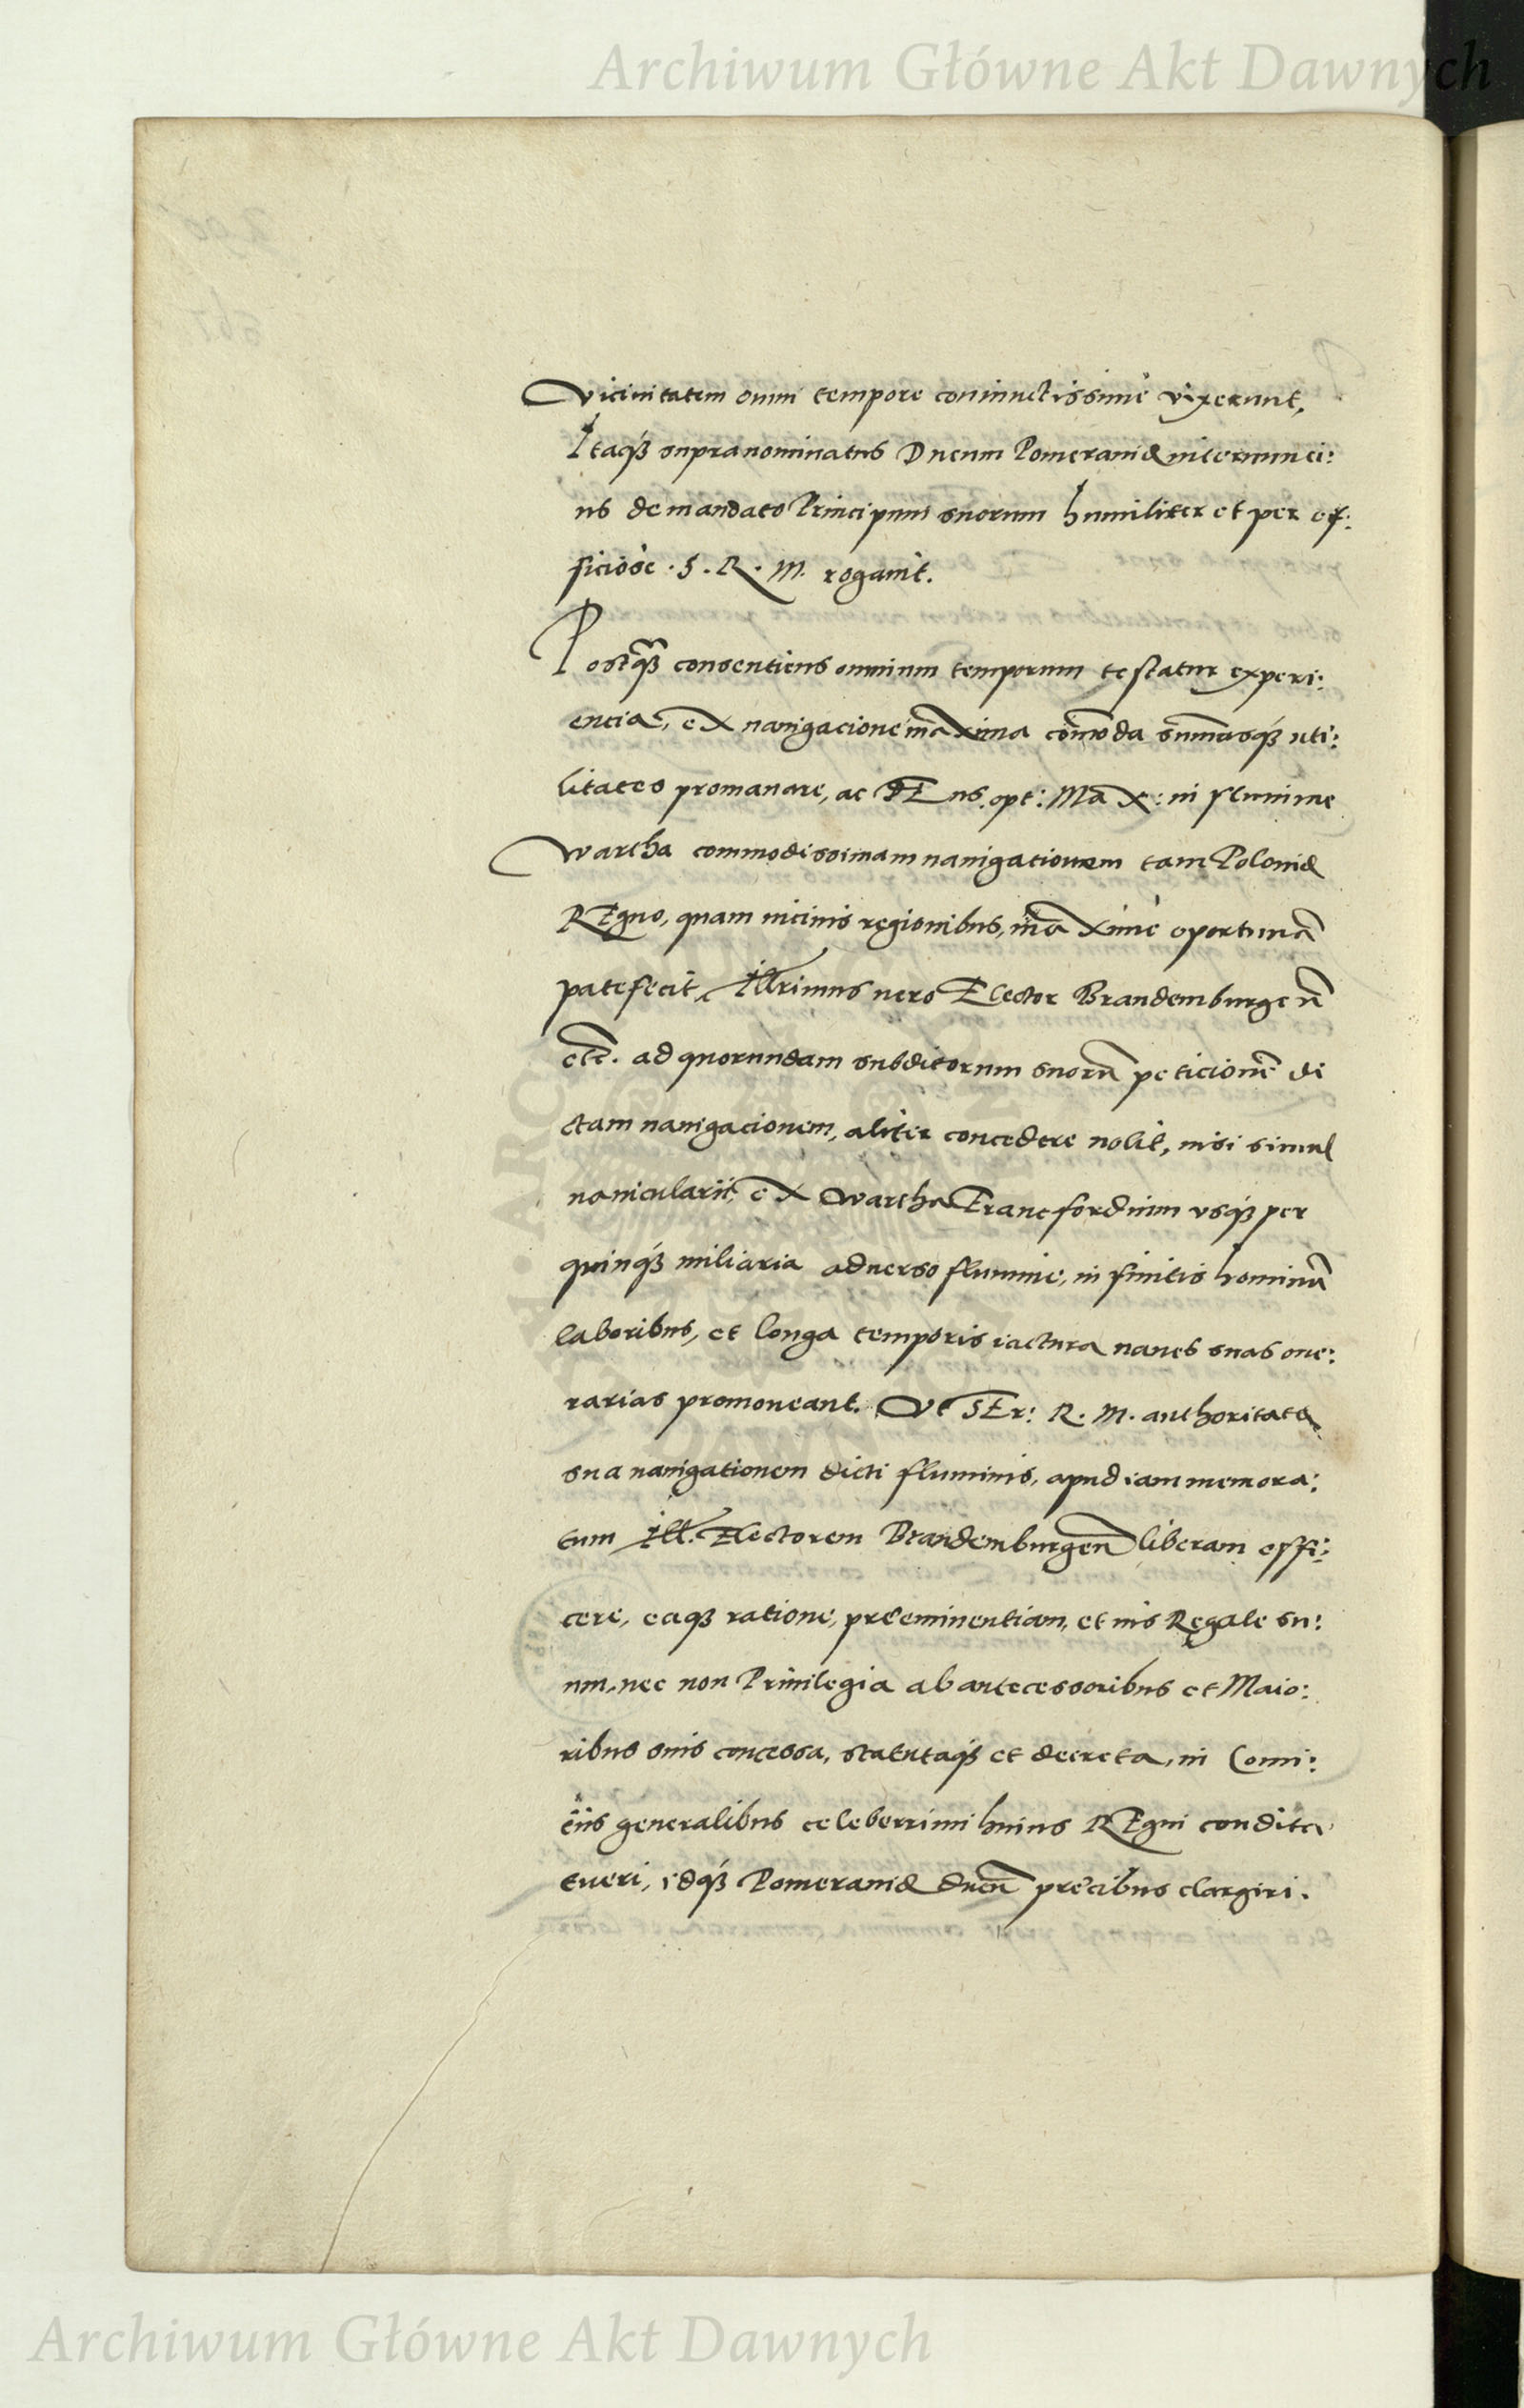 Archiwum Główne Akt Dawnych
vicinitatem omni tempore coniunctissimè vixerunt,
Itaqꝫ supranominatus Ducum Pomeraniæ internunci:
us de mandato Principum suorum humiliter et per of:
ficiosè · S · R · M. rogauit.
Postqꝫ consentiens omnium temporum testatur experi:
encia, ex nauigacione maxima com̄oda sum̄asqꝫ uti:
litates promanare, ac DEus opt: Max: in flumine
Wartha commodissimam nauigationem tam Poloniæ
REgno, quam uicinis regionibus, maximè oportunā
patefecit, Illrimus uero Elector Brandemburgeñ
etc̄. ad quorundam subditorum suorū peticionē di
ctam nauigacionem, aliter concedere nolit, nisi simul
nauicularii, ex Wartha Francfordium vsqꝫ per
quinqꝫ miliaria aduerso flumine, infinitis hominū
laboribus, et longa temporis iactura naues suas one:
rarias promoueant. Vt SEr: R. M. authoritate
sua nauigationem dicti fluminis, apud iam memora:
tum Ill. Electorem Brandemburgeñ liberam effi:
cere, eaqꝫ ratione, præeminentiam, et ius Regale su:
um, nec non Priuilegia ab antecessoribus et Maio:
ribus suis concessa, statutaqꝫ et decreta, in Comi:
ciis generalibus celeberrimi huius REgni condita
tueri, idqꝫ Pomeraniæ ducū precibus elargiri.
Archiwum Główne Akt Dawnych